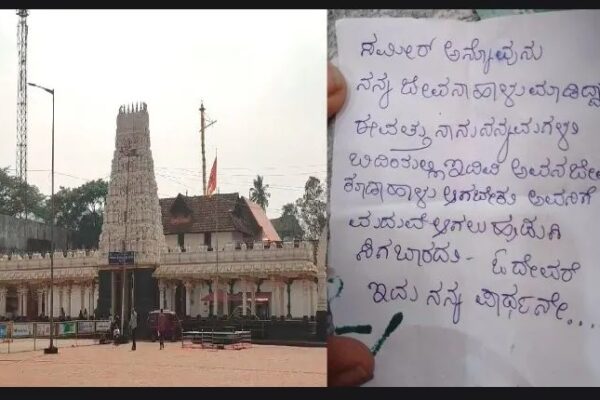 ಸಮೀರ್ ಅನ್ನೋವುನು
ನನ್ನ ಜೀವನಾ ಹಾಳು ಮಾಡಿದ್ದಾ
ಈವತ್ತು ನಾನು ನನ್ನ ಮಗಳು
ಬಿದಿಯಲ್ಲಿ ಇದಿವಿ ಅವನ ಜೀವ
ಕೂಡಾ ಹಾಳು ಆಗಬೇಕು ಅವನಿಗೆ
ಮದುವೆ ಆಗಲು ಹುಡುಗಿ
ಸಿಗಬಾರದು - ಓ ದೇವರೆ
ಇದು ನನ್ನ ಪಾರ್ಥನೇ...